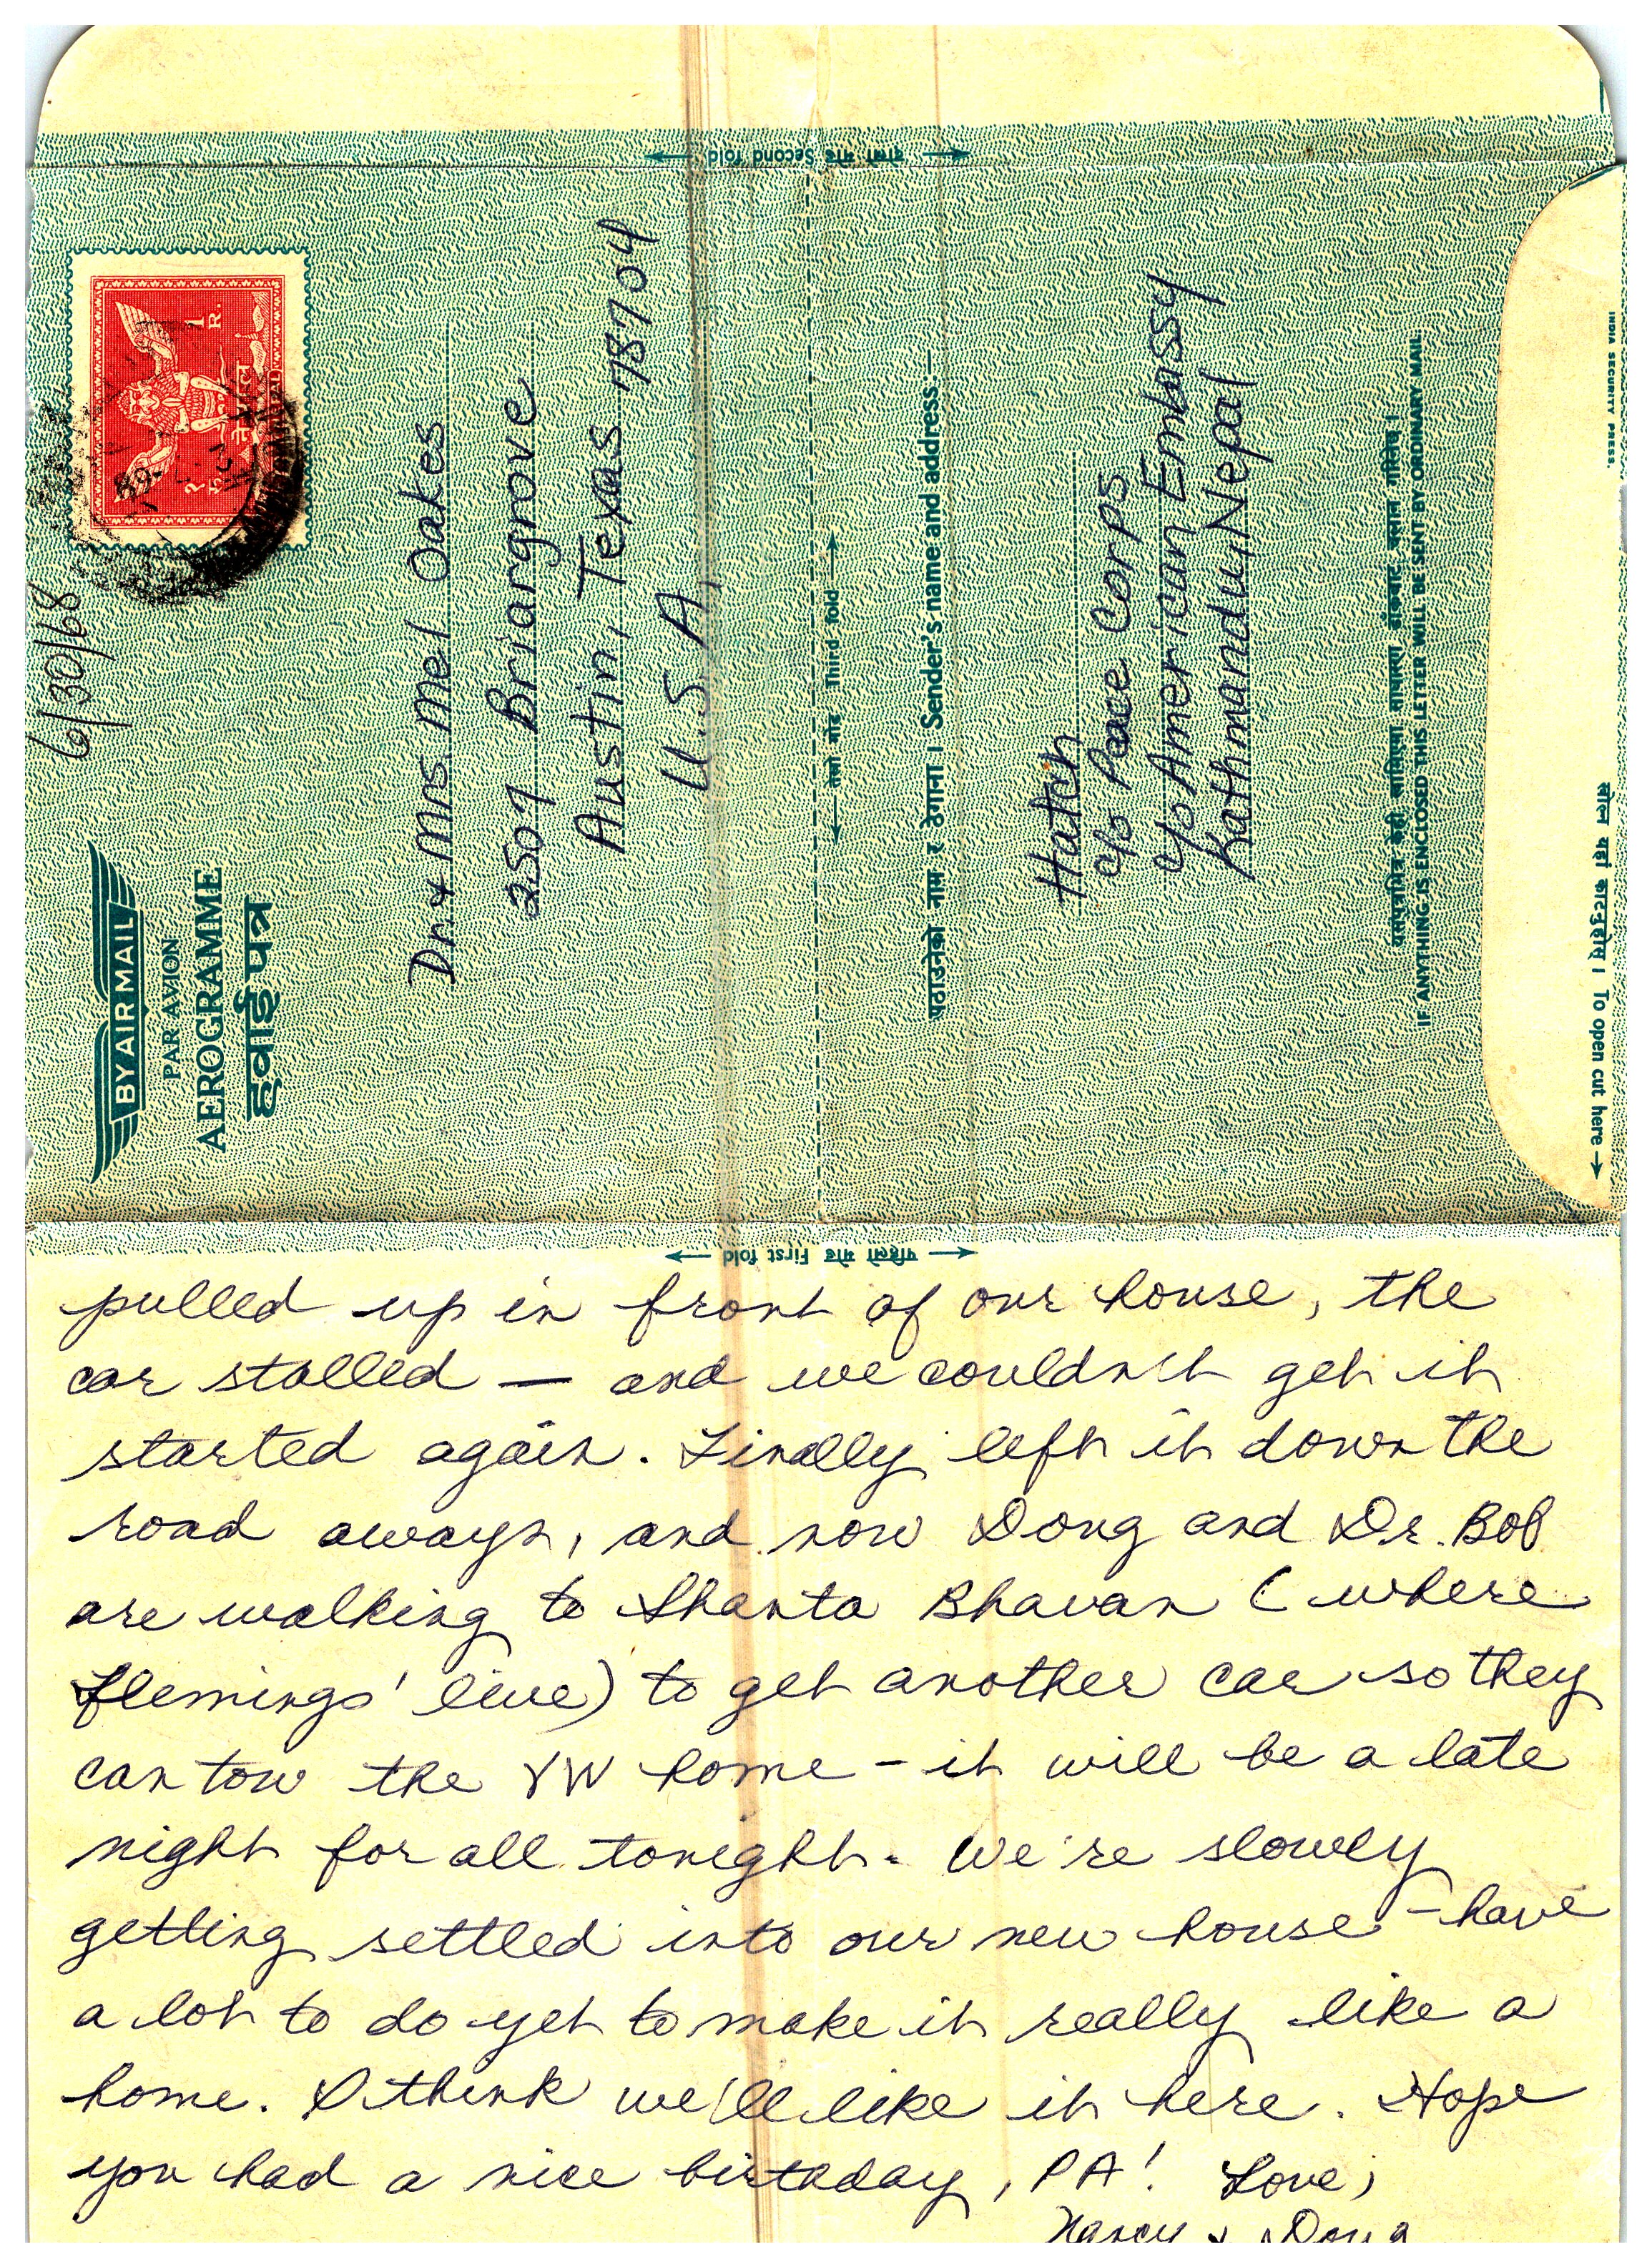 ← दोस्रो मोड Second fold →
6/30/68
नेपाल
NEPAL
1 R.
BY AIR MAIL
PAR AVION
AEROGRAMME
हवाई पत्र
Dr. & Mrs. Mel Oakes
2509 Briargrove
Austin, Texas 78704
U.S.A.
← तेस्रो मोड Third fold →
पठाउनेको नाम र ठेगाना । Sender's name and address:—
Hatch
c/o Peace Corps
c/o American Embassy
Kathmandu, Nepal
यसपत्रभित्र केही राखिएमा साधारण डाँकबाट चलान गरिनेछ ।
IF ANYTHING IS ENCLOSED THIS LETTER WILL BE SENT BY ORDINARY MAIL
INDIA SECURITY PRESS.
खोल्न यहाँ काट्नुहोस् । To open cut here →
← पहिलो मोड First fold →
pulled up in front of our house, the
car stalled — and we couldn't get it
started again. Finally left it down the
road aways, and now Doug and Dr. Bob
are walking to Shanta Bhavan (where
Flemings' live) to get another car so they
can tow the VW home - it will be a late
night for all tonight. We're slowly
getting settled into our new house - have
a lot to do yet to make it really like a
home. I think we'll like it here. Hope
you had a nice birthday, PA! Love,
Nancy & Doug